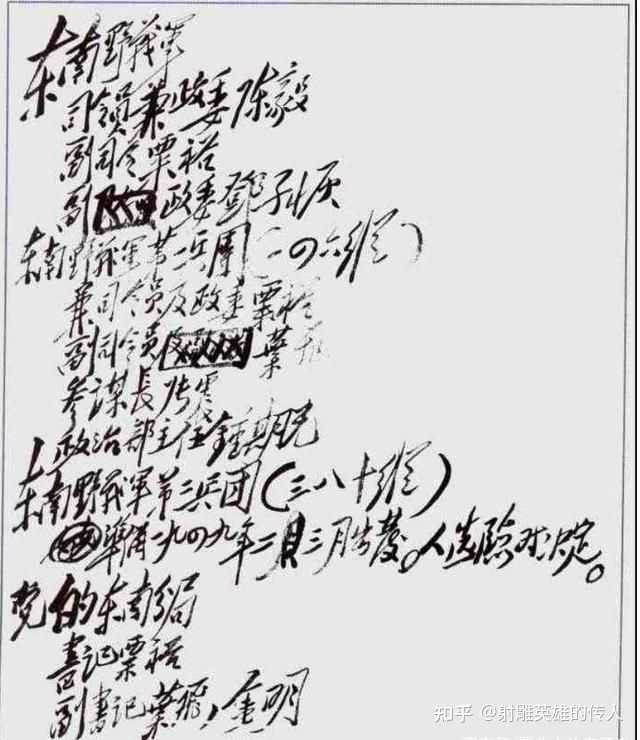 东南野战军
司令员兼政委陈毅
副司令粟裕
副政委邓子恢
东南野战军第二兵团(一四六纵)
兼司令员及政委粟裕
副司令员叶飞
参谋长张震
政治部主任钟期光
东南野战军第三兵团(三八十纵)
準备一九四九年二月三月成立。人选临时决定。
党的东南分局
書记粟裕
副書记葉飛,金明
知乎 @射雕英雄的传人